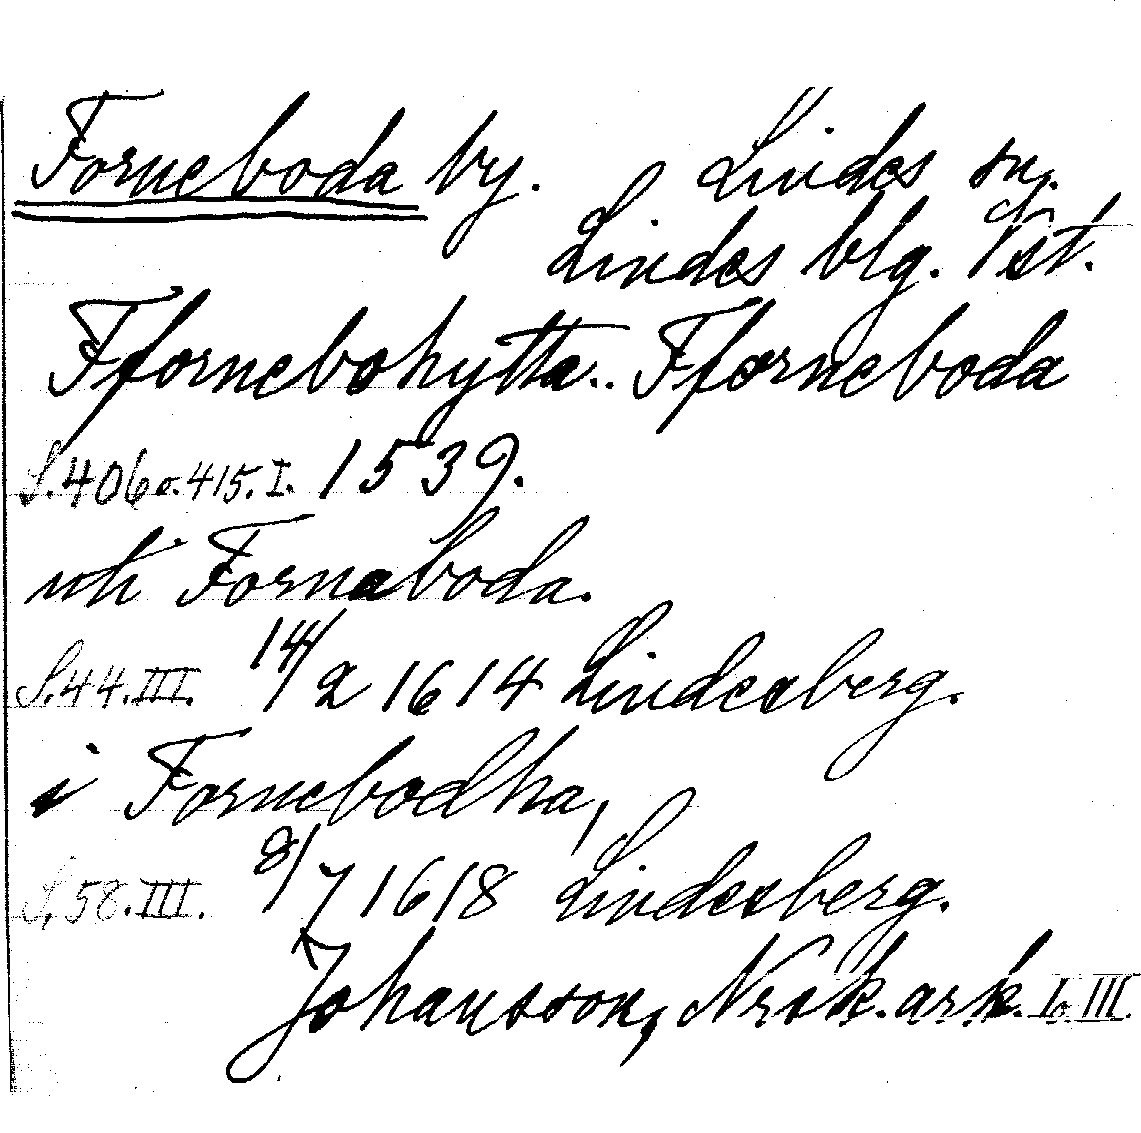 Forneboda by. Lindes sn.
Lindes blg. Vst.
Ffornebohytta.. Fforneboda
S. 406 o. 415. I. 1539.
uti Fornaboda.
S. 44. III. 14/2 1614 Lindesberg.
i Fornebodha,
S. 58. III. 8/7 1618 Lindesberg.
Johansson, Norsk. ark. I o III.